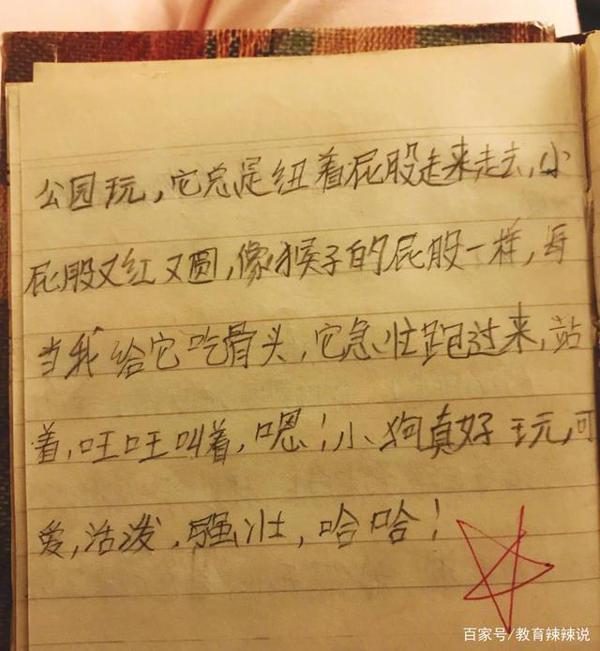 公园玩，它总是纽着屁股走来走去，小
屁股又红又圆，像猴子的屁股一样，每
当我给它吃骨头，它急忙跑过来，站
着，旺旺叫着，嗯！小狗真好玩，可
爱，活泼，强壮，哈哈！
百家号/教育辣辣说